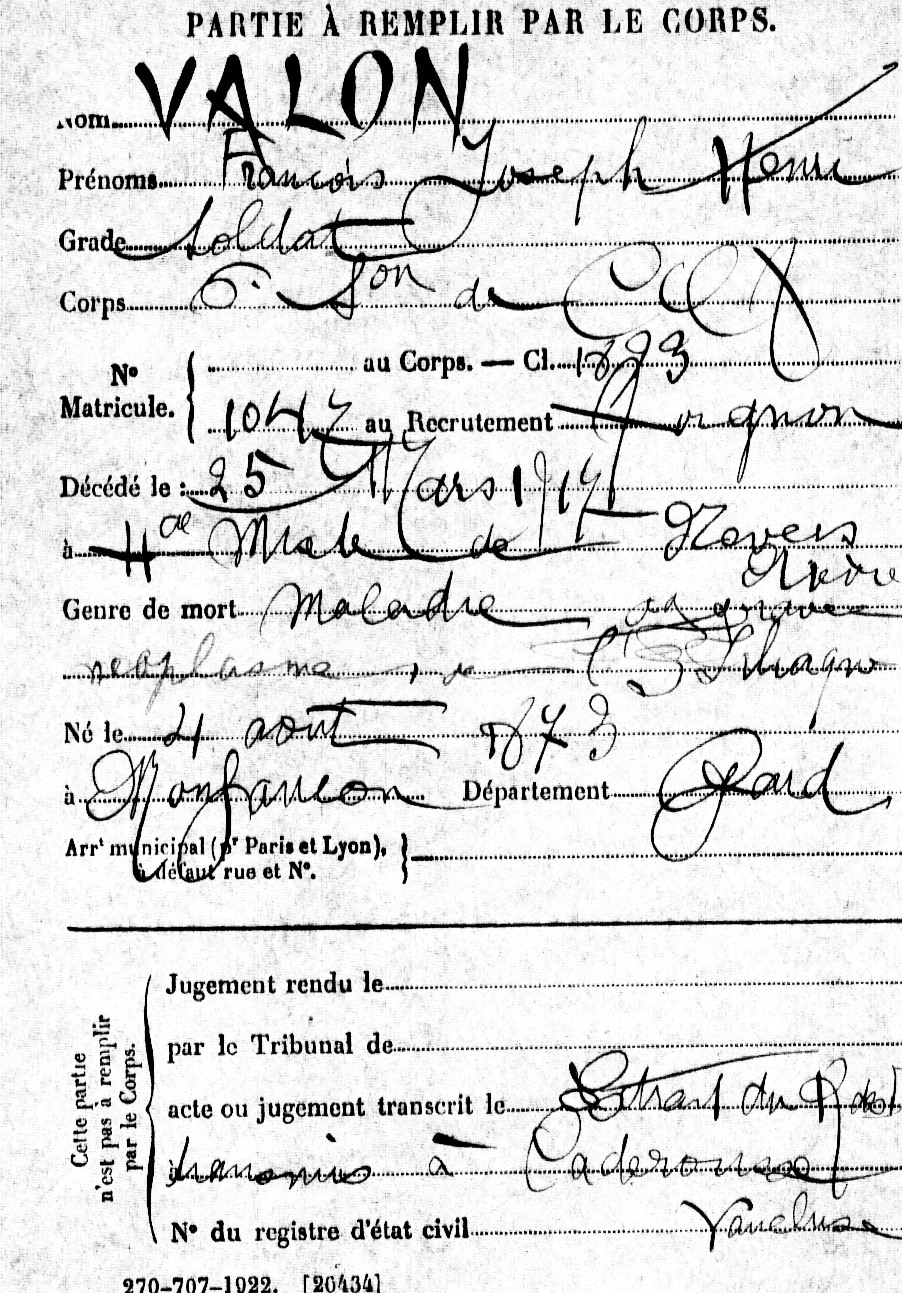 PARTIE À REMPLIR PAR LE CORPS.
Nom VALON
Prénoms François Joseph Henri
Grade Soldat
Corps 6e Son de
au Corps. — Cl. 1893
N° Matricule. 1047 au Recrutement Avignon
Décédé le : 25 Mars 1917
à Hal Mixte de Nevers
Nièvre
Genre de mort Maladie
neoplasme
Né le 4 août 1873
à Monfaucon Département Gard
Arrt municipal (pr Paris et Lyon),
à défaut rue et N°.
Cette partie
n'est pas à remplir
par le Corps.
Jugement rendu le
par le Tribunal de
acte ou jugement transcrit le Extrait du R
à transmis à Caderousse
N° du registre d'état civil Vaucluse
270-707-1922. [26434]